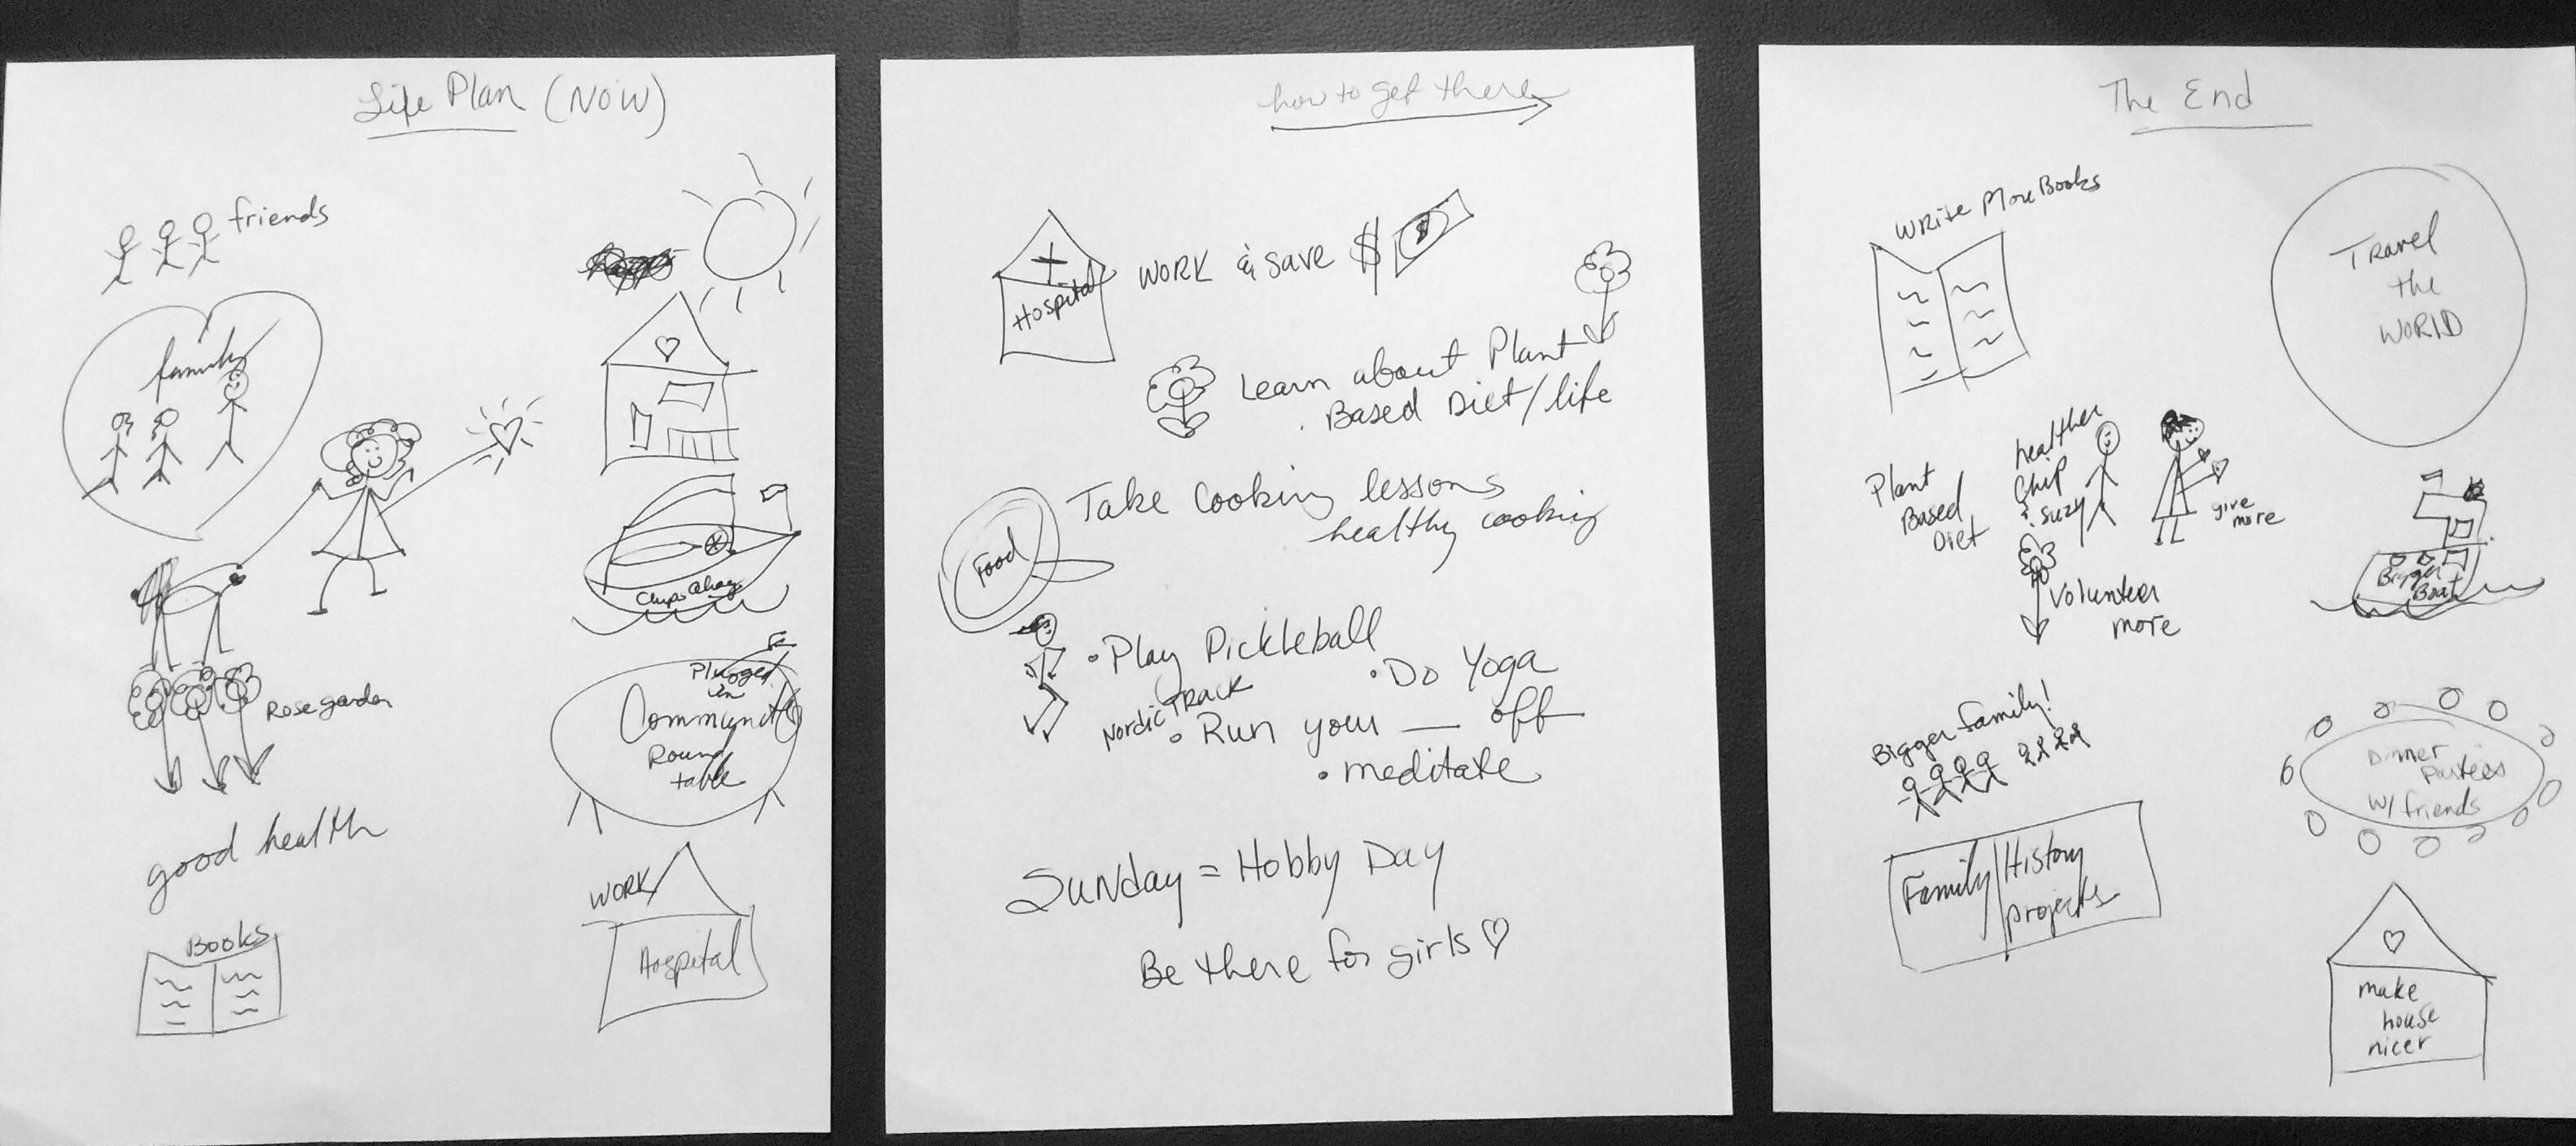 Life Plan (NOW)
friends
family
Rose garden
good health
Books
Chips Ahoy
Plugged
in
Community
Round
table
WORK
Hospital
how to get there
Hospital
WORK & save $
$
Learn about Plant
Based Diet/life
Food
Take Cooking lessons
healthy cooking
• Play Pickleball
• Do Yoga
Nordic Track
• Run your __ off
• meditate
Sunday = Hobby Day
Be there for girls
The End
Write More Books
Travel
the
WORLD
Plant
Based
Diet
healthier
Chip
& Suzy
give
more
Volunteer
more
Bigger
Boat
Bigger family!
Dinner
Parties
w/ friends
Family History
projects
make
house
nicer